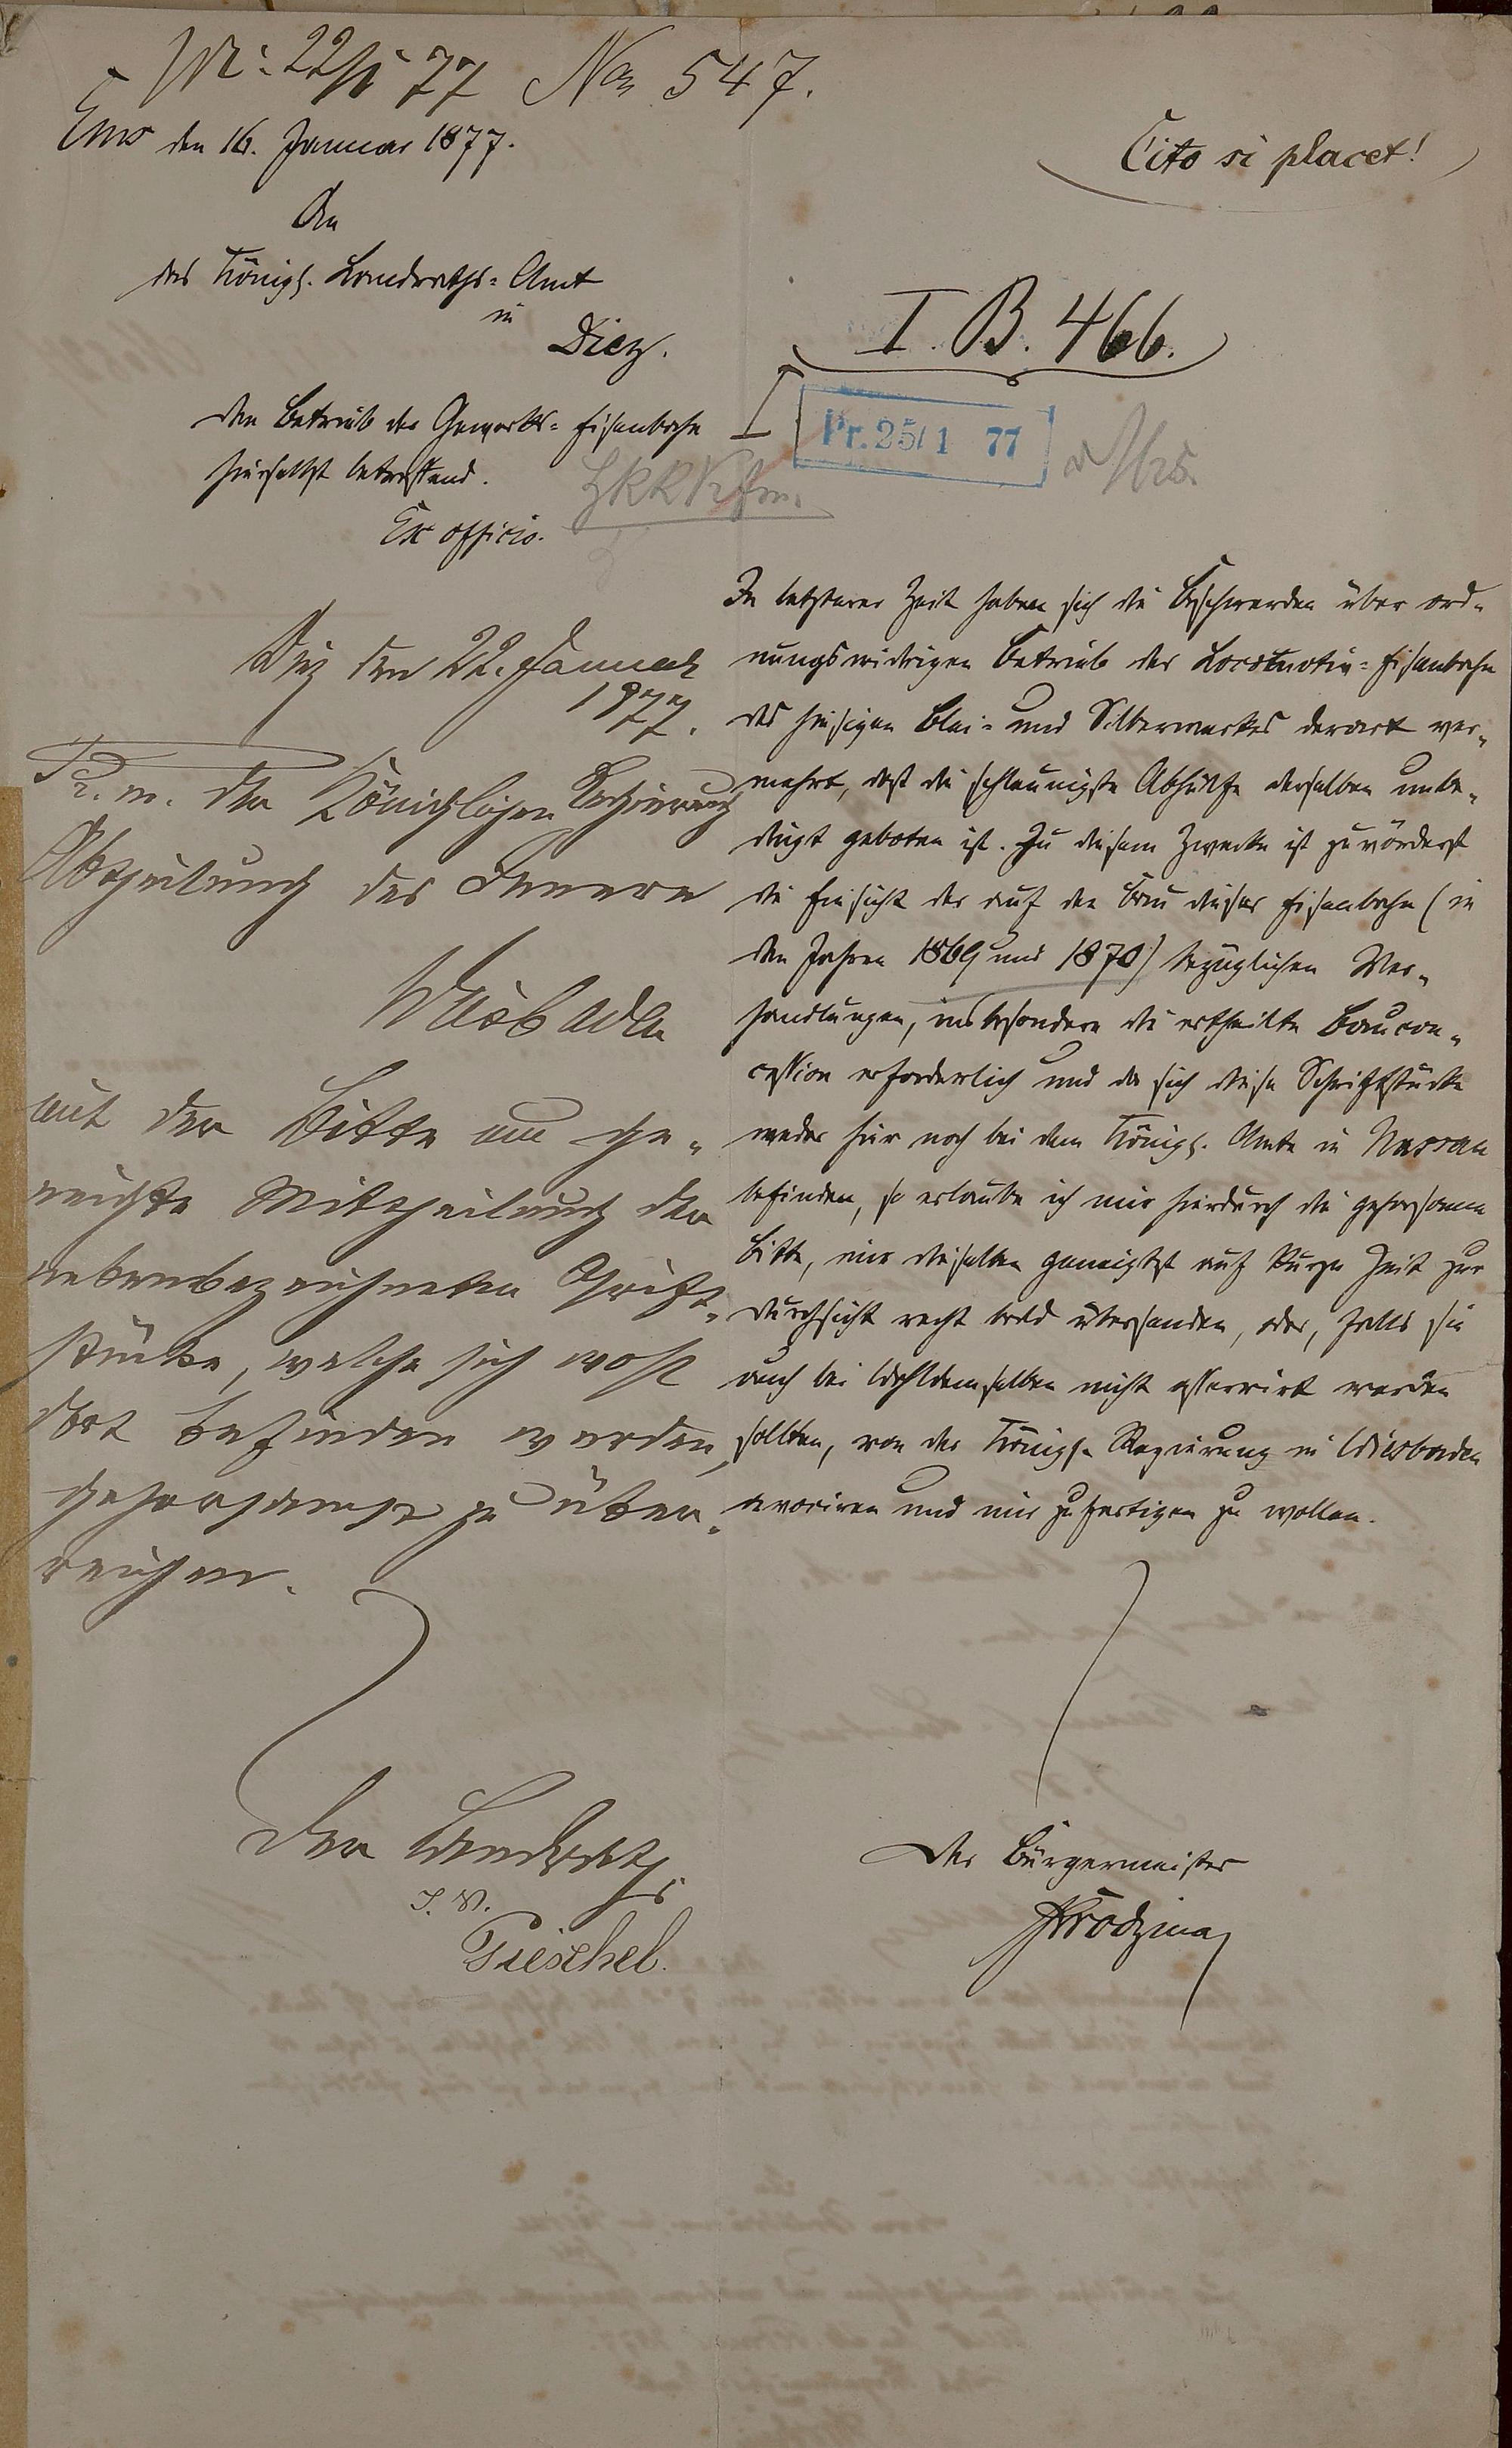 22/1 77 No 547.
Ems den 16. Januar 1877.
Cito si placet!
An
das Königl. Landraths-Amt
in
Diez.
I. B. 466.
I
Pr. 25/1 77
Den Betrieb der Gewerks-Eisenbahn
hierselbst betreffend.
Ex officio.
In letzterer Zeit haben sich die Beschwerden über ord-
nungswidrigen Betrieb der Locomotiv-Eisenbahn
des hiesigen Blei- und Silberwerkes derart ver-
mehrt, daß die schleunigste Abhülfe derselben unbe-
dingt geboten ist. Zu diesem Zwecke ist zuvörderst
die Einsicht der auf den Bau dieser Eisenbahn (in
den Jahren 1869 und 1870) bezüglichen Ver-
handlungen, insbesondere die ertheilte Baucon-
cession erforderlich und da sich diese Schriftstücke
weder hier noch bei dem Königl. Amte in Nassau
befinden, so erlaube ich mir hierdurch die gehorsame
Bitte, mir dieselben geneigtest auf kurze Zeit zur
Durchsicht recht bald übersenden, oder, falls sie
auch bei Wohldemselben nicht asservirt werden
sollten, von der Königl. Regierung in Wiesbaden
avociren und mir zufertigen zu wollen.
Der Bürgermeister
Diez den 22. Januar
1877.
Br. m. der Königlichen Regierung
Abtheilung des Innern
Wiesbaden
mit der Bitte um ge-
neigte Mittheilung der
nebenbezeichneten Schrift-
stücke, welche sich wohl
dort befinden werden,
gehorsamst zu über-
reichen.
Der Landrath
I. V.